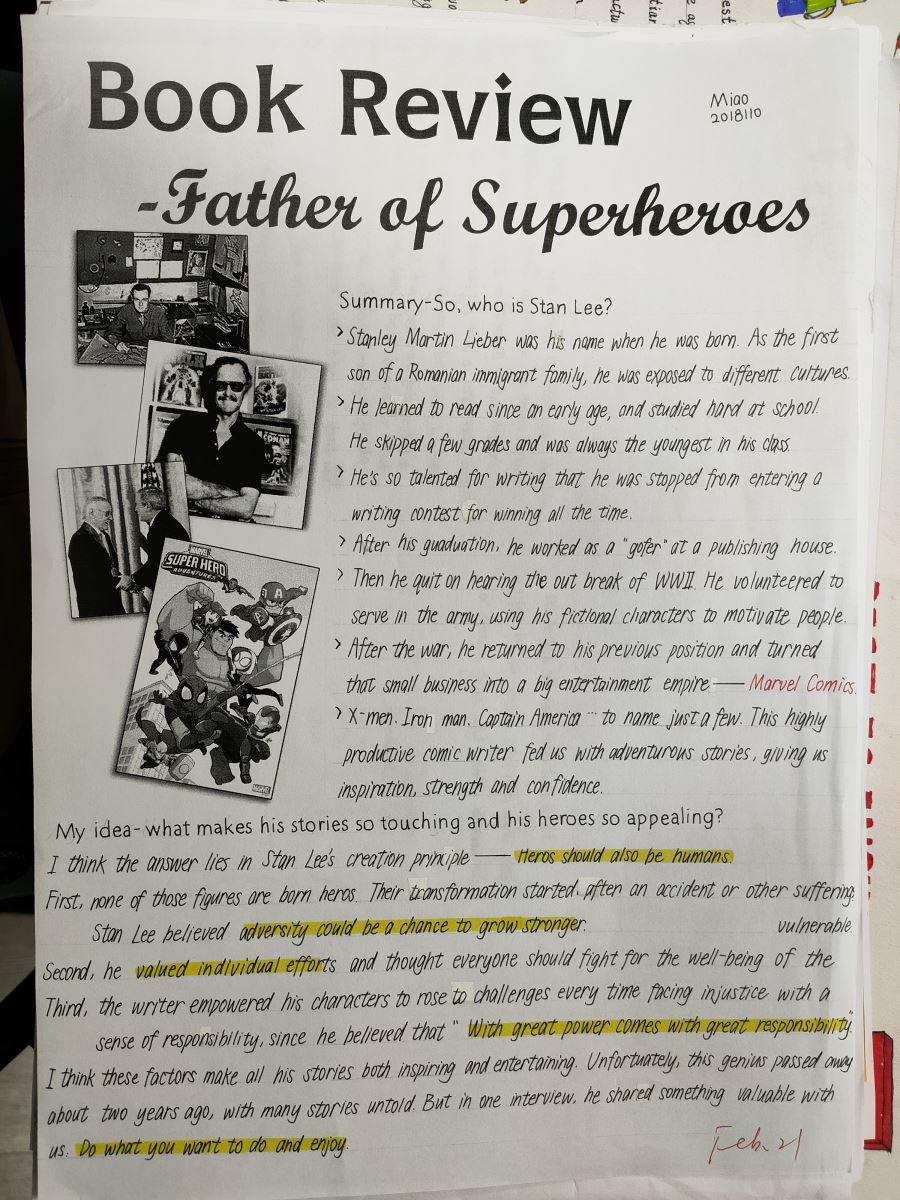 Book Review
Miao
2018110
-Father of Superheroes
Summary-So, who is Stan Lee?
> Stanley Martin Lieber was his name when he was born. As the first
son of a Romanian immigrant family, he was exposed to different cultures.
> He learned to read since an early age, and studied hard at school.
He skipped a few grades and was always the youngest in his class.
> He's so talented for writing that he was stopped from entering a
writing contest for winning all the time.
> After his guaduation, he worked as a "gofer" at a publishing house.
> Then he quit on hearing the out break of WWII. He volunteered to
serve in the army, using his fictional characters to motivate people.
> After the war, he returned to his previous position and turned
that small business into a big entertainment empire — Marvel Comics.
> X-men. Iron man. Captain America ··· to name just a few. This highly
productive comic writer fed us with adventurous stories, giving us
inspiration, strength and confidence.
MARVEL
SUPER HERO
ADVENTURES
CONAN
MARVEL
My idea-what makes his stories so touching and his heroes so appealing?
I think the answer lies in Stan Lee's creation principle — Heros should also be humans.
First, none of those figures are born heros. Their transformation started after an accident or other suffering.
Stan Lee believed adversity could be a chance to grow stronger.
vulnerable.
Second, he valued individual efforts and thought everyone should fight for the well-being of the
Third, the writer empowered his characters to rose to challenges every time facing injustice with a
sense of responsibility, since he believed that "With great power comes with great responsibility."
I think these factors make all his stories both inspiring and entertaining. Unfortunately, this genius passed away
about two years ago, with many stories untold. But in one interview, he shared something valuable with
us: Do what you want to do and enjoy.
Feb. 21